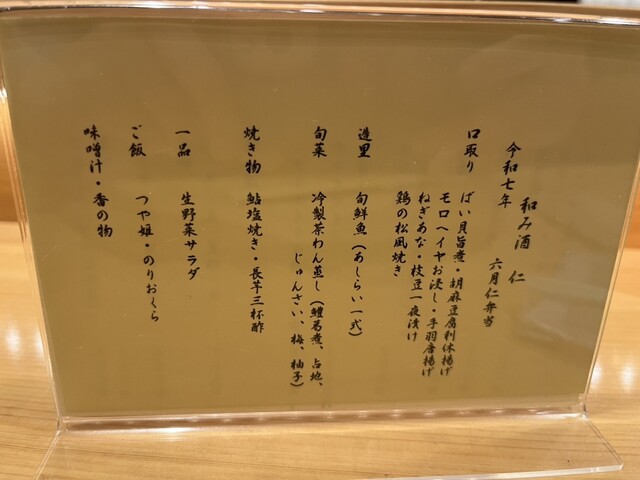 和み酒 仁
令和七年 六月仁弁当
口取り ばい貝旨煮・胡麻豆腐利休揚げ
モロヘイヤお浸し・手羽唐揚げ
ねぎあな・枝豆一夜漬け
鶏の松風焼き
造里 旬鮮魚(あしらい一式)
旬菜 冷製茶わん蒸し(鱧葛煮、占地、
じゅんさい、梅、柚子)
焼き物 鮎塩焼き・長芋三杯酢
一品 生野菜サラダ
ご飯 つや姫・のりおくら
味噌汁・香の物